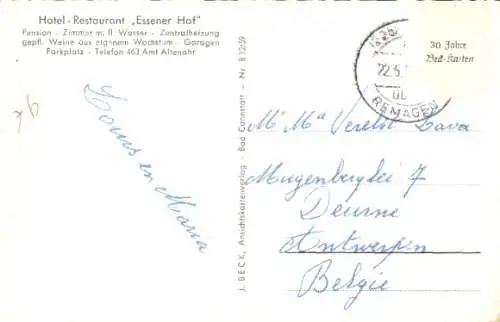 Hotel-Restaurant „Essener Hof"
Pension - Zimmer m. fl. Wasser - Zentralheizung
gepfl. Weine aus eigenem Wachstum - Garagen
Parkplatz - Telefon 463 Amt Altenahr
30 Jahre
Beck-Karten
22.5.
REMAGEN
Louis en Maria
J. BECK, Ansichtskartenverlag - Bad Cannstatt - Nr. B 12/59
Mr Ma Verelst
Mugenberglei 7
Deurne
Antwerpen
Belgie